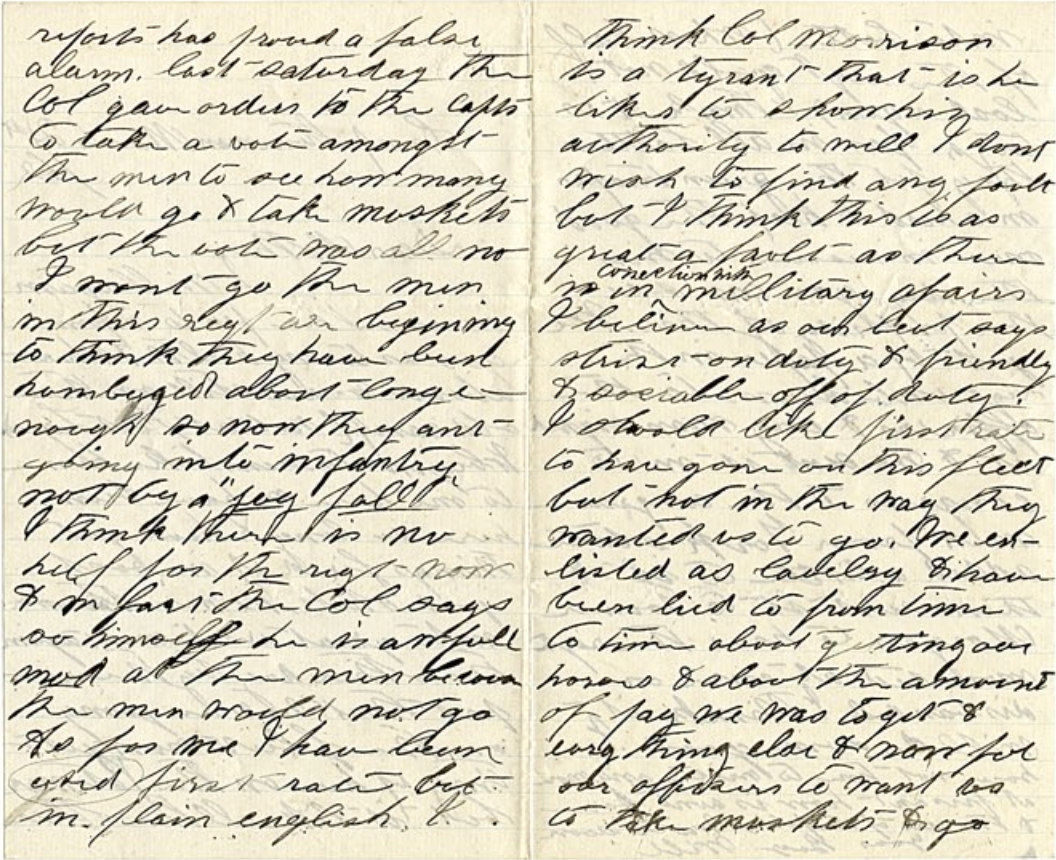 reports has proved a false
alarm. last saturday the
Col gave orders to the Capts
to take a vote amongst
the men to see how many
would go & take muskets
but the vote was all no
I wont go the men
in this regt are begining
to think they have been
humbuged about long e-
nough so now they ant
going into infantry
not by a "jug full"
I think there is no
help for the regt now
& in fact the Col says
so himself he is awfull
mad at the men becaus
the men would not go
As for me I have been
used first rate but
in plain english I
think Col Morrison
is a tyrant that is he
likes to show his
authority to well I dont
wish to find any fault
but I think this is as
great a fault as there
is in conection with millitary afairs
I believe as our Leut says
strict on duty & friendly
& sociable off of duty.
I should like first rate
to have gone on this fleet
but not in the way they
wanted us to go. We en-
listed as cavelry & have
been lied to from time
to time about getting our
horses & about the amount
of pay we was to get &
evry thing else & now for
our officers to want us
to take muskets & go